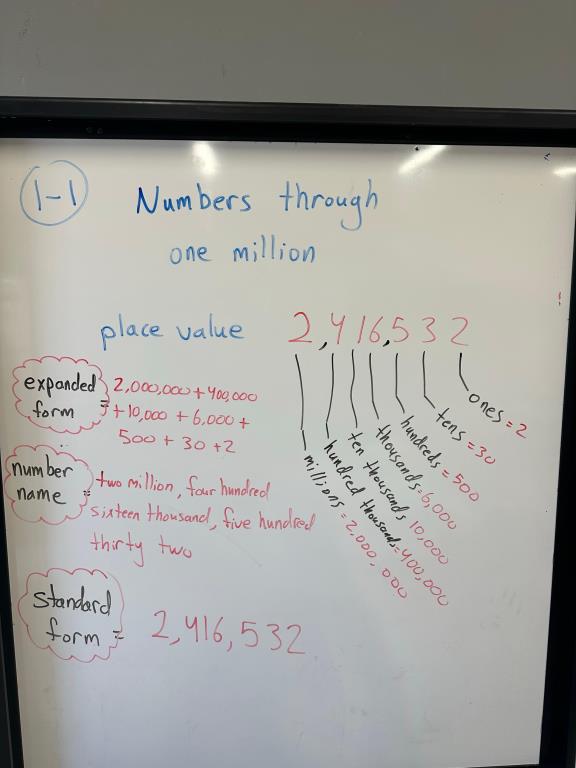 1-1 Numbers through
one million
place value 2,416,532
ones = 2
tens = 30
hundreds = 500
thousands = 6,000
ten thousands 10,000
hundred thousands = 400,000
millions = 2,000,000
expanded form = 2,000,000 + 400,000
+ 10,000 + 6,000 +
500 + 30 + 2
number name = two million, four hundred
sixteen thousand, five hundred
thirty two
standard form = 2,416,532